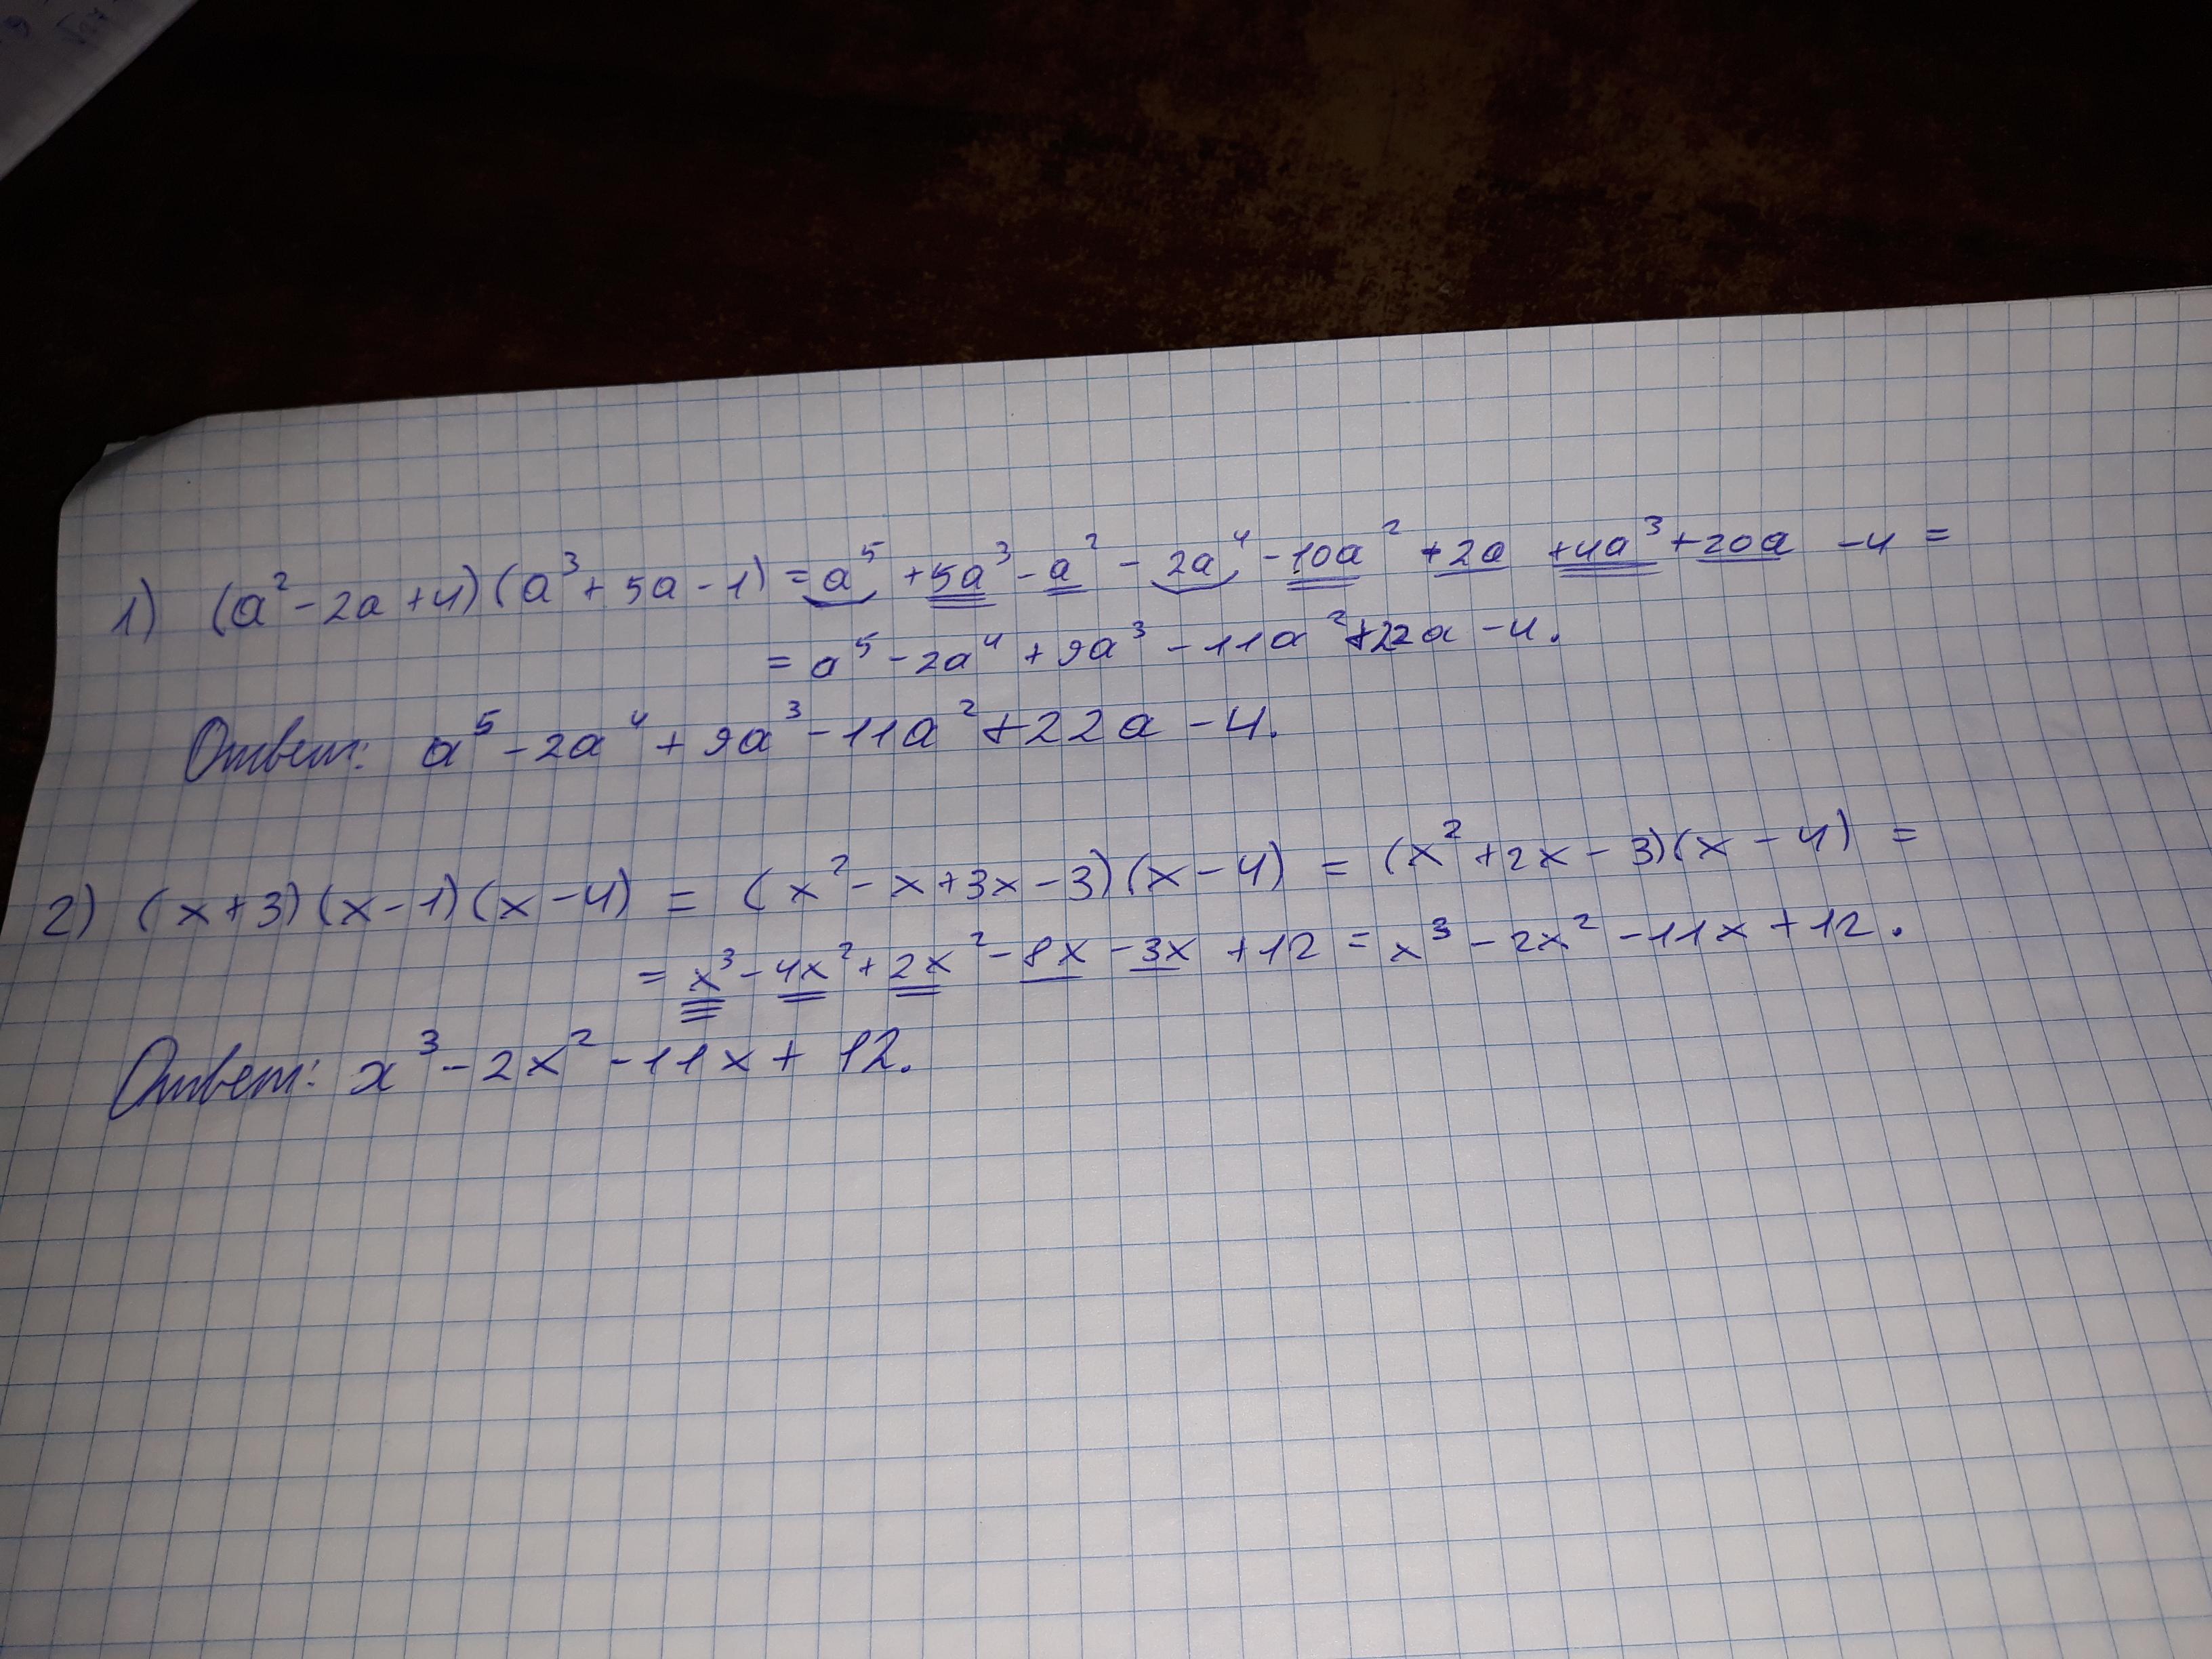 1) (a² - 2a + 4)(a³ + 5a - 1) = a⁵ + 5a³ - a² - 2a⁴ - 10a² + 2a + 4a³ + 20a - 4 =
= a⁵ - 2a⁴ + 9a³ - 11a² + 22a - 4.
Ответ: a⁵ - 2a⁴ + 9a³ - 11a² + 22a - 4.
2) (x+3)(x-1)(x-4) = (x² - x + 3x - 3)(x - 4) = (x² + 2x - 3)(x - 4) =
= x³ - 4x² + 2x² - 8x - 3x + 12 = x³ - 2x² - 11x + 12.
Ответ: x³ - 2x² - 11x + 12.